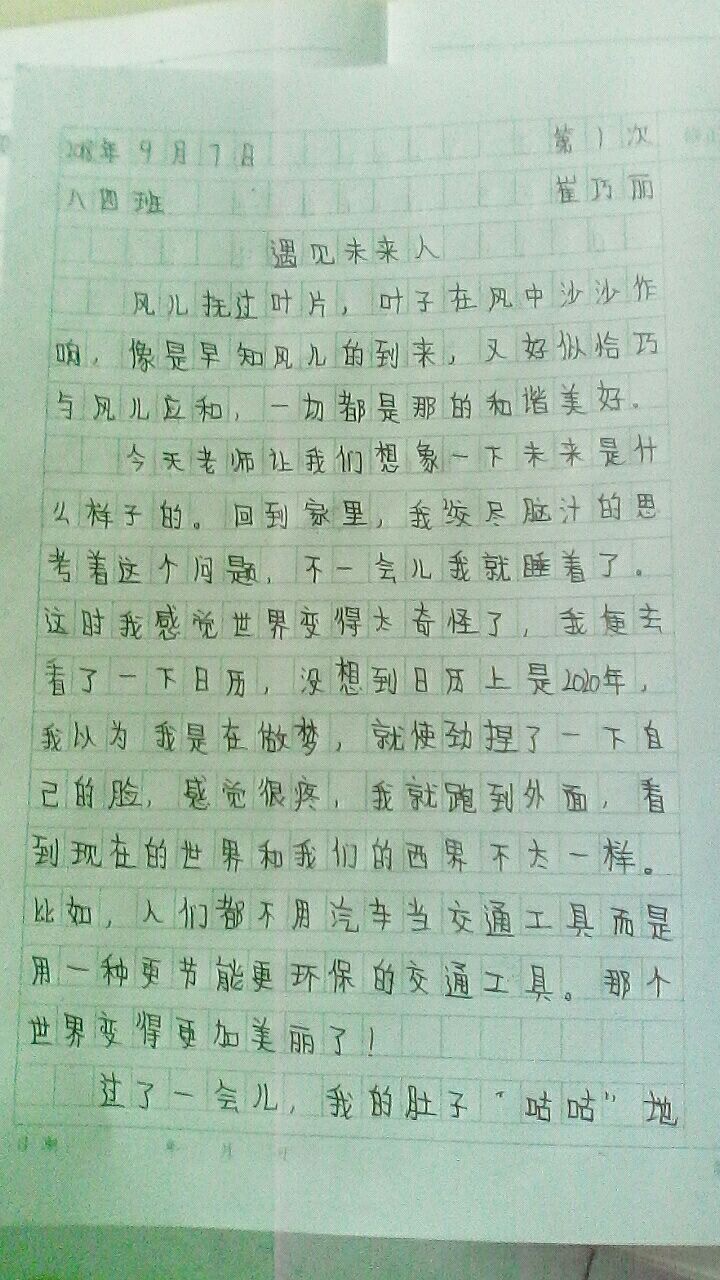 2018年 9月7日 第1次
八四班 崔巧丽
遇见未来人
风儿抚过叶片，叶子在风中沙沙作
响，像是早知风儿的到来，又好似恰巧
与风儿应和，一切都是那的和谐美好。
今天老师让我们想象一下未来是什
么样子的。回到家里，我绞尽脑汁的思
考着这个问题，不一会儿我就睡着了。
这时我感觉世界变得太奇怪了，我便去
看了一下日历，没想到日历上是2020年，
我以为我是在做梦，就使劲捏了一下自
己的脸，感觉很疼，我就跑到外面，看
到现在的世界和我们的西界不太一样。
比如，人们都不用汽车当交通工具而是
用一种更节能更环保的交通工具。那个
世界变得更加美丽了！
过了一会儿，我的肚子“咕咕”地
年 月